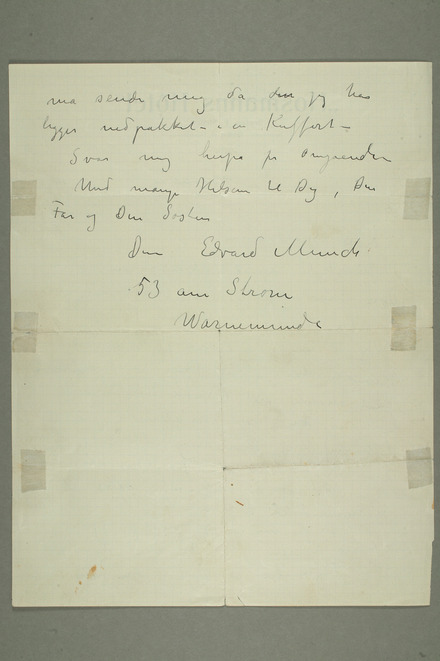 ma sende mig da den jeg har
ligger nedpakket i en Kuffert –
Svar mig herpå pr
Med mange Hilsen til Dig, Din
Far og Din Søster
Din Edvard Munch
53 am Strom
Warnemünde